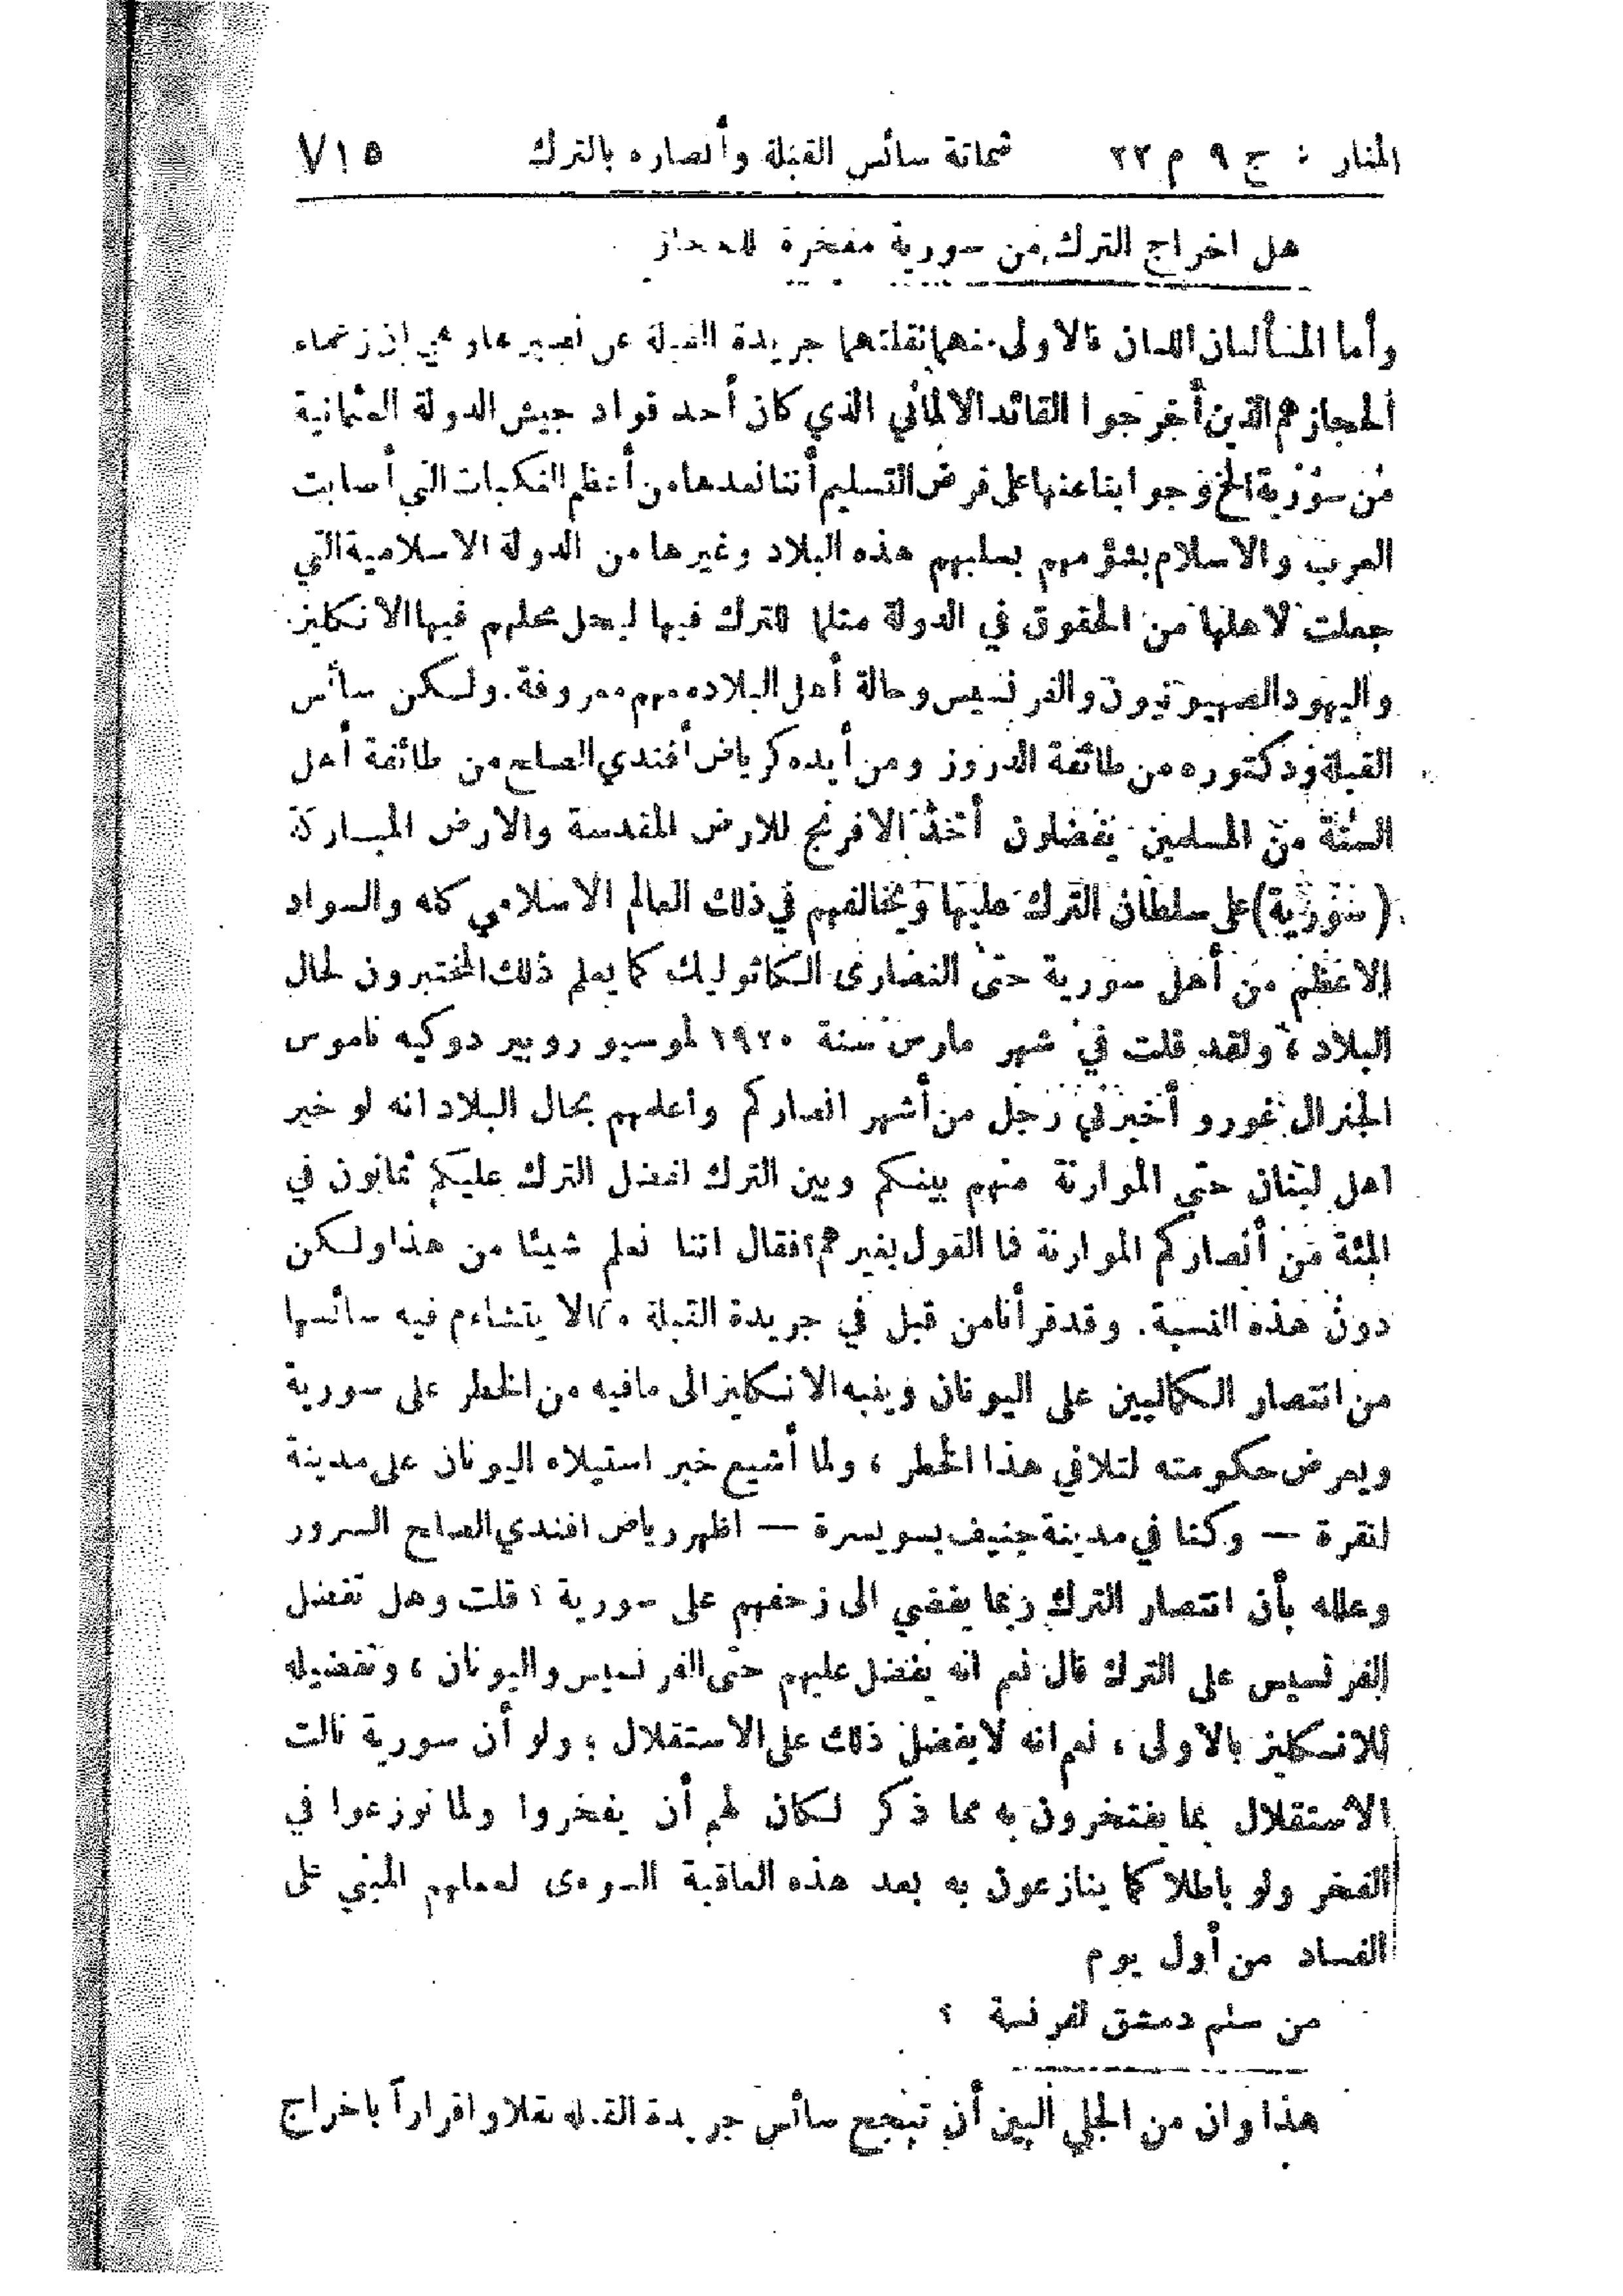 المنار : ج ٩ م ٢٢ شماتة سائس القبلة وأنصاره بالترك ٧١٥
هل اخراج الترك من سورية مفخرة للحجاز
وأما المسألتان اللتان فالاولى منهما نقلتهما جريدة القبلة عن نصير لها وهي ان زعماء
الحجاز هم الذين أخرجوا القائد الالماني الذي كان أحد قواد جيش الدولة العثمانية
من سورية الخ وجوابنا عنها على فرض التسليم أننا نعدها من أعظم النكبات التي أصابت
العرب والاسلام بشؤمهم بسلبهم هذه البلاد وغيرها من الدولة الاسلامية التي
جعلت لاهلها من الحقوق في الدولة مثلما للترك فيها ليحل محلهم فيها الانكليز
واليهود الصهيونيون والفرنسيس وحالة أهل البلاد معهم معروفة. ولكن سائس
القبلة ودكتوره من طائفة الدروز ومن أيده كرياض أفندي الصلح من طائفة أهل
السنة من المسلمين يفضلون أخذ الافرنج للارض المقدسة والارض المباركة
(سورية) على سلطان الترك عليها ويخالفهم في ذلك العالم الاسلامي كله والسواد
الاعظم من أهل سورية حتى النصارى الكاثوليك كما يعلم ذلك المختبرون لحال
البلاد ، ولقد قلت في شهر مارس سنة ١٩٢٠ لموسيو روبير دوكيه ناموس
الجنرال غورو أخبرني رجل من أشهر انصاركم واعلمهم بحال البلاد انه لو خير
اهل لبنان حتى الموارنة منهم بينكم وبين الترك لفضل الترك عليكم ثمانون في
المئة من أنصاركم الموارنة فما القول بغيرهم؟ فقال اننا نعلم شيئا من هذا ولكن
دون هذه النسبة. وقد قرأنا من قبل في جريدة القبلة مقالا يتشاءم فيه سائسها
من انتصار الكماليين على اليونان وينبه الانكليز الى مافيه من الخطر على سورية
ويعرض حكومته لتلافي هذا الخطر ، ولما أشيع خبر استيلاء اليونان على مدينة
انقرة — وكنا في مدينة جنيف بسويسرة — اظهر رياض افندي الصلح السرور
وعلله بأن انتصار الترك ربما يفضي الى زحفهم على سورية ؛ قلت وهل تفضل
الفرنسيس على الترك قال نعم انه يفضل عليهم حتى الفرنسيس واليونان ، وتفضيله
للانكليز بالاولى ، نعم انه لا يفضل ذلك على الاستقلال ؛ ولو أن سورية نالت
الاستقلال بما يفتخرون به مما ذكر لكان لهم أن يفخروا ولما نوزعوا في
الفخر ولو باطلا كما ينازعون به بعد هذه العاقبة السوءى لعملهم المبني على
الفساد من أول يوم
من سلم دمشق لفرنسة ؟
هذا وان من الجلي البين أن تبجح سائس جريدة القبلة نقلا واقراراً باخراج